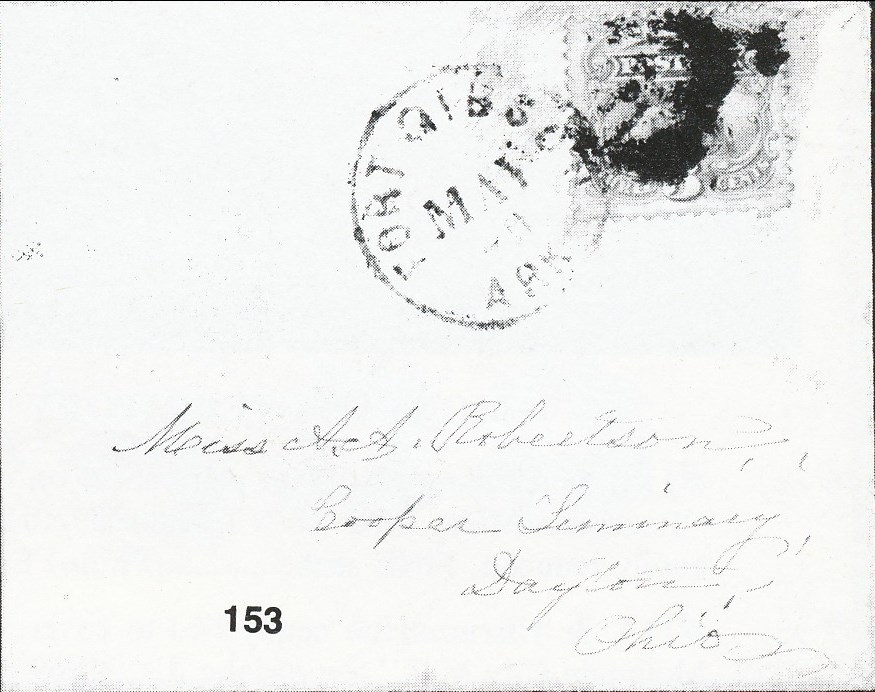 FORT GIBSON
MAY
ARK
Miss A. A. Robertson,
Cooper Seminary,
Dayton,
Ohio
153